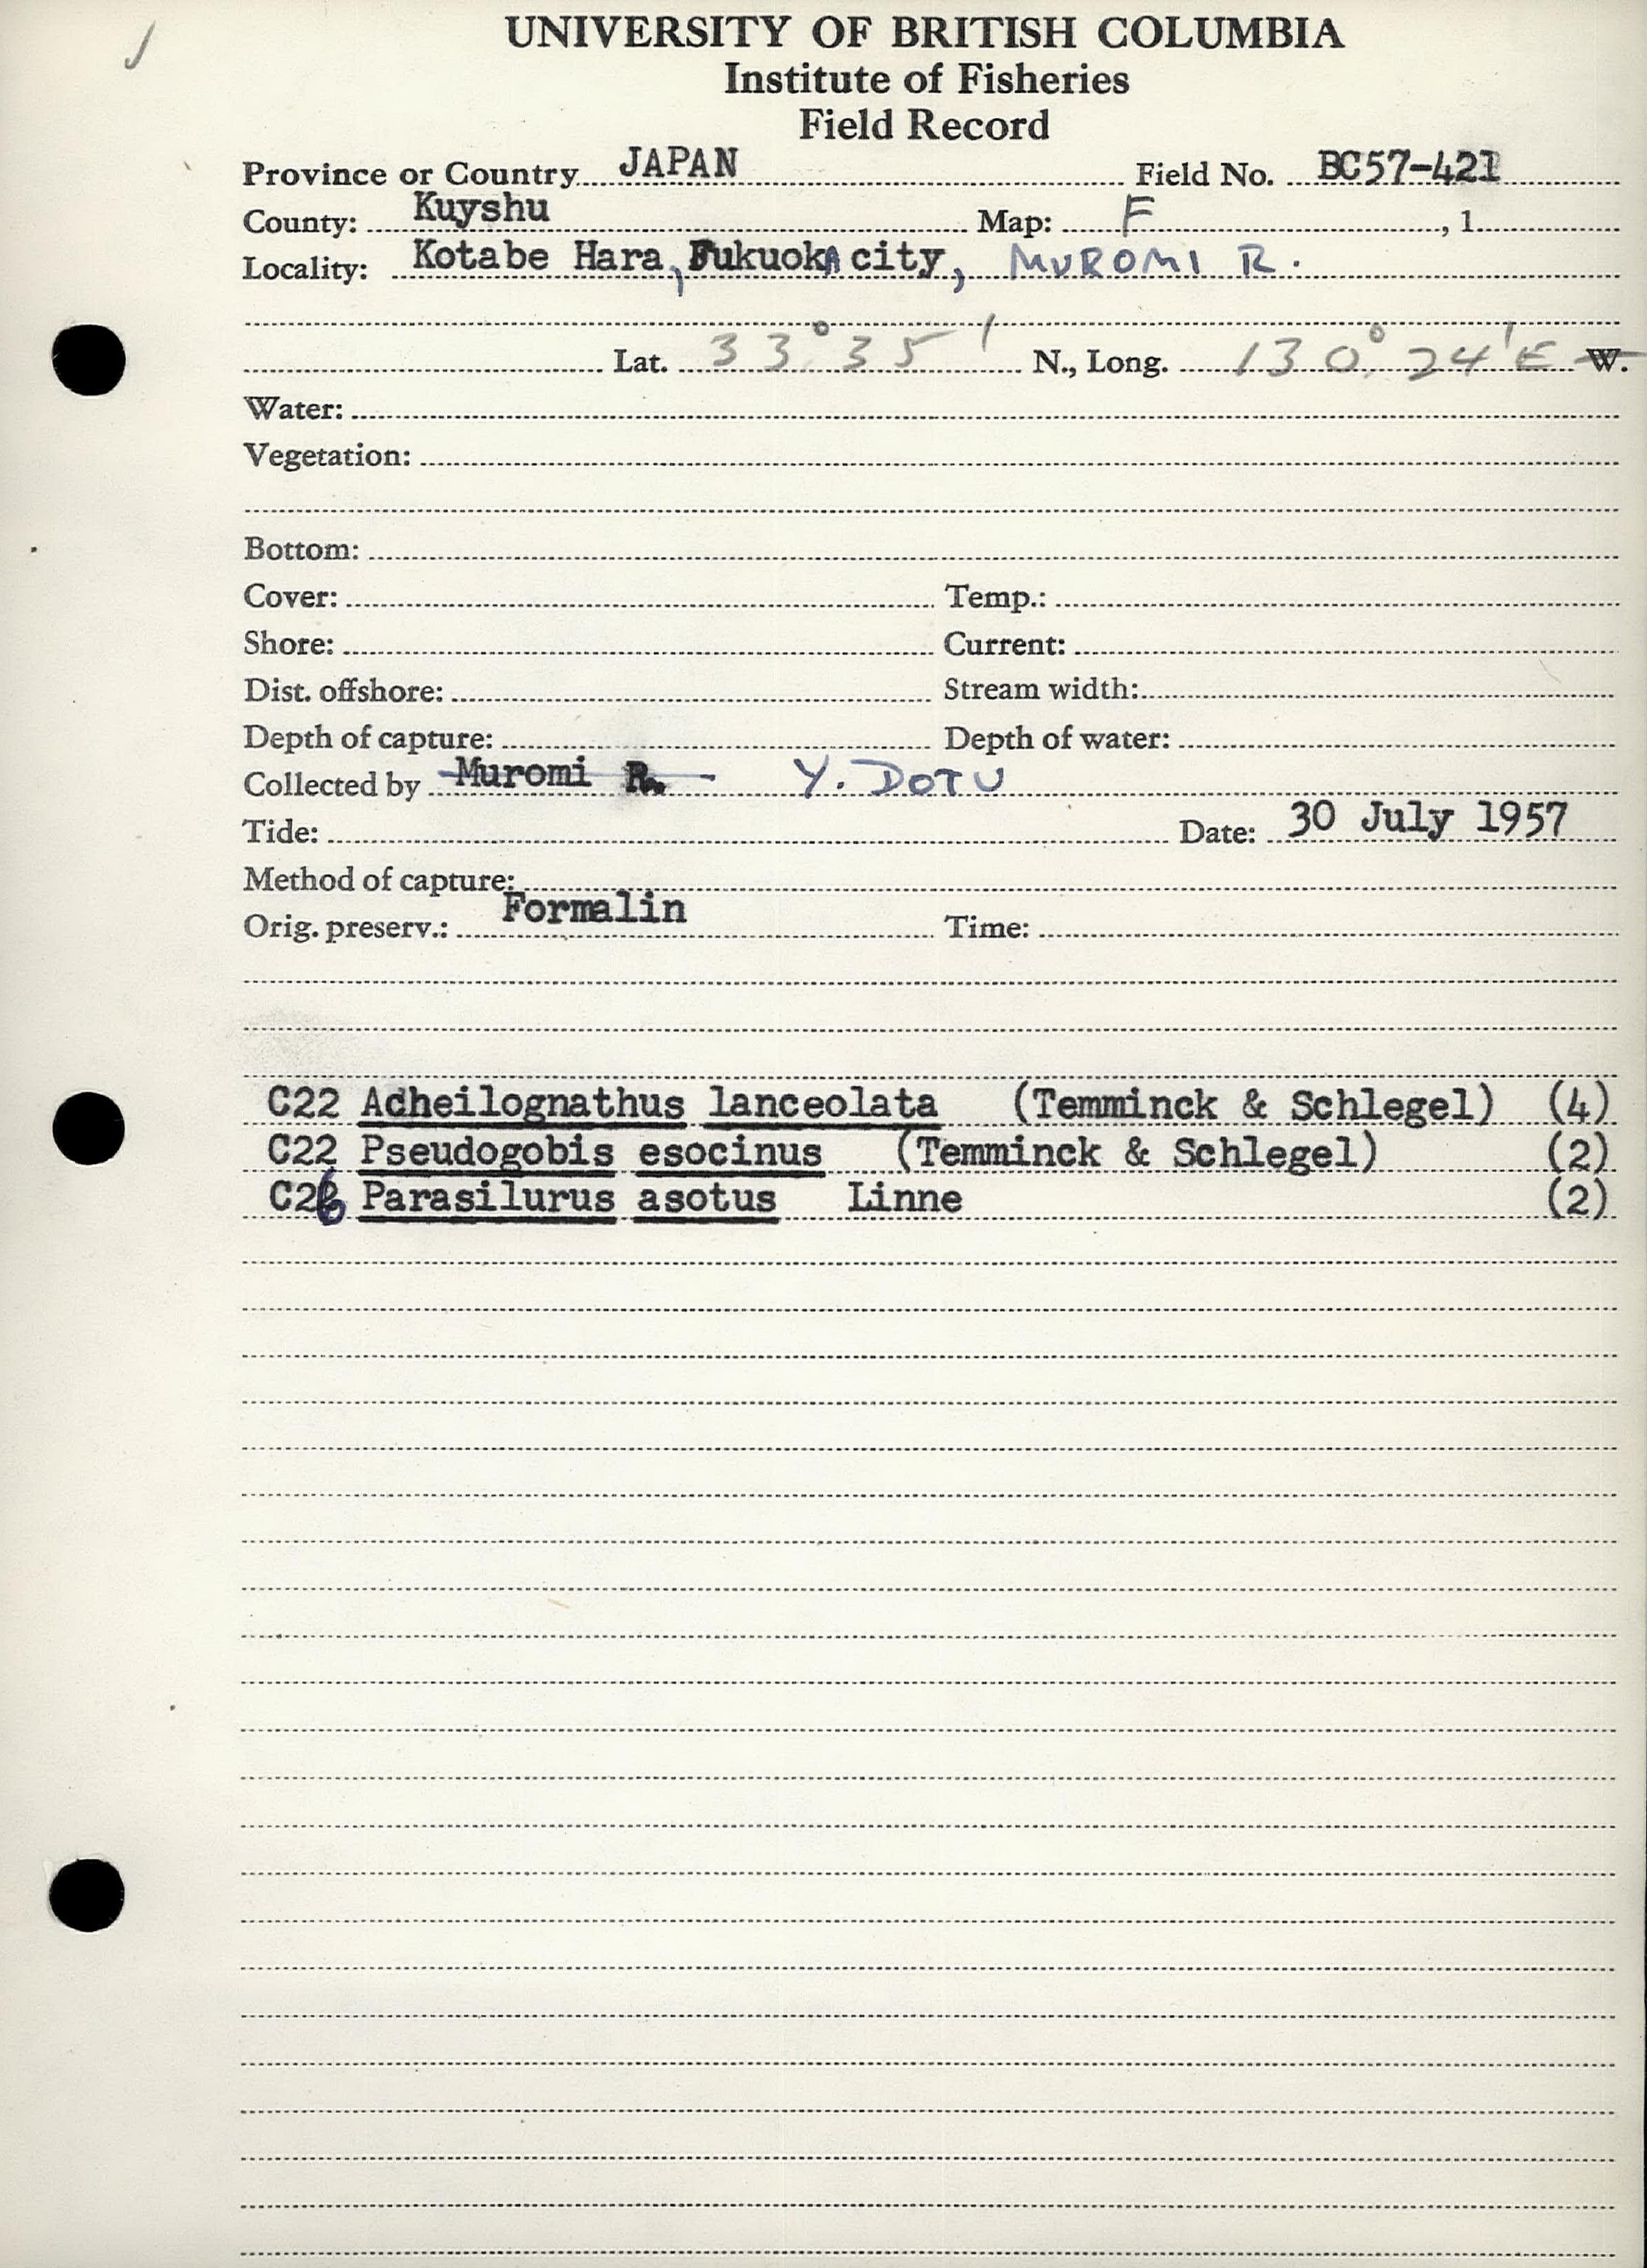 UNIVERSITY OF BRITISH COLUMBIA
Institute of Fisheries
Field Record
Province or Country JAPAN Field No. BC57-421
County: Kuyshu Map: F , 1
Locality: Kotabe Hara, FukuokA city, MUROMI R.
Lat. 33°35' N., Long. 130°24'E W.
Water:
Vegetation:
Bottom:
Cover: Temp.:
Shore: Current:
Dist. offshore: Stream width:
Depth of capture: Depth of water:
Collected by Muromi R. Y. DOTU
Tide: Date: 30 July 1957
Method of capture:
Orig. preserv.: Formalin Time:
C22 Adheilognathus lanceolata (Temminck & Schlegel) (4)
C22 Pseudogobis esocinus (Temminck & Schlegel) (2)
C26 Parasilurus asotus Linne (2)